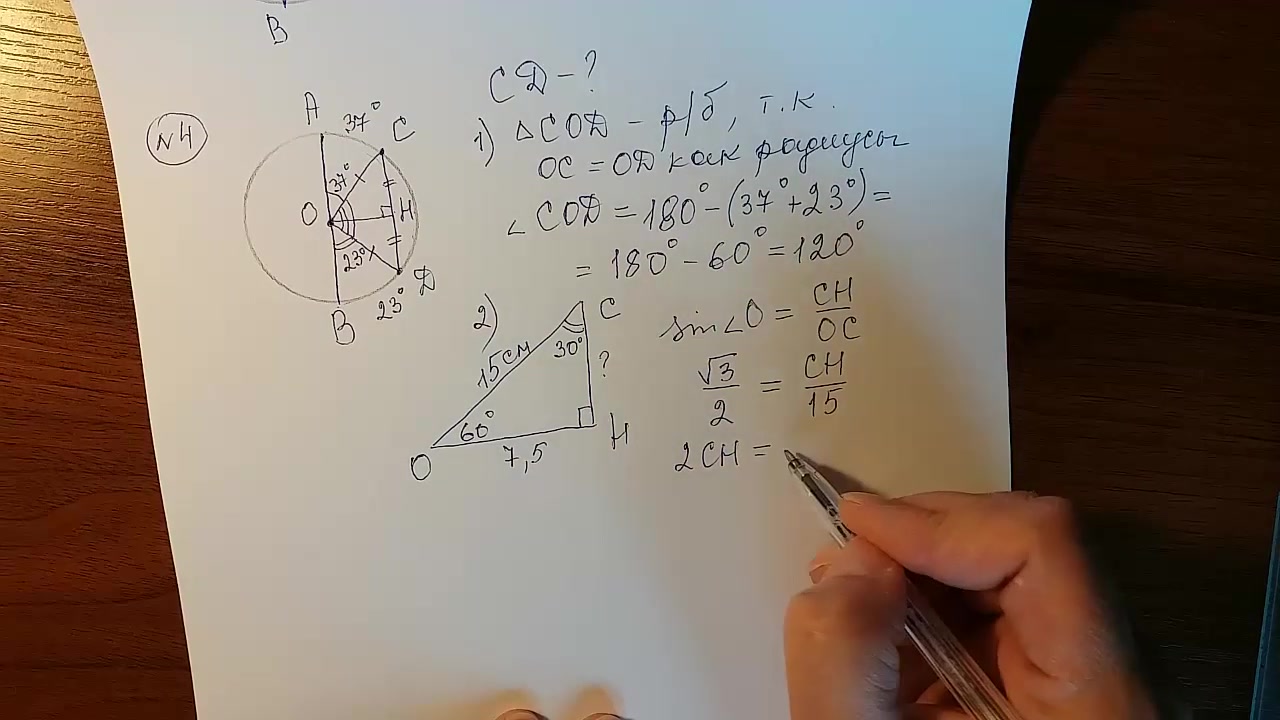 B
СД - ?
№4
A
37°
C
37°
O
H
23°
Д
23°
B
1) △СОД - р/б, т.к.
ОС = ОД как радиусы
∠СОД = 180° - (37° + 23°) =
= 180° - 60° = 120°
2)
C
15см
30°
?
60°
O
7,5
H
sin∠O = CH/OC
√3/2 = CH/15
2CH =